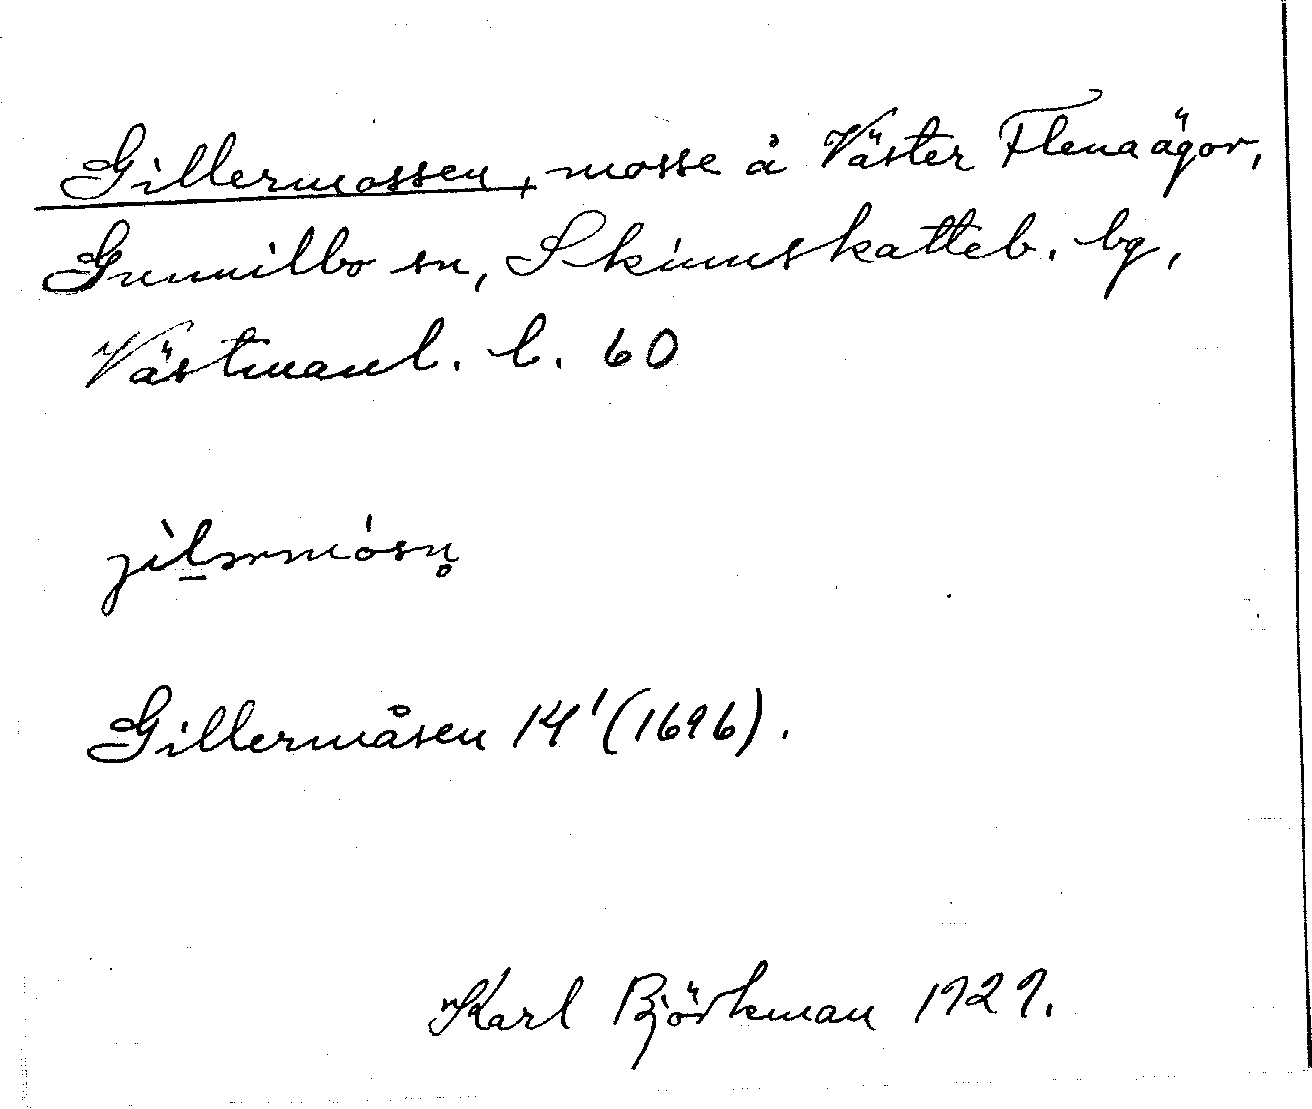 Gillermossen, mosse å Väster Flena ägor,
Gunnilbo sn, Skinnskatteb. bg,
Västmanl. l. 60
jìl̠ərmósn̥
Gillermåsen 14¹ (1696).
Karl Björkman 1929.